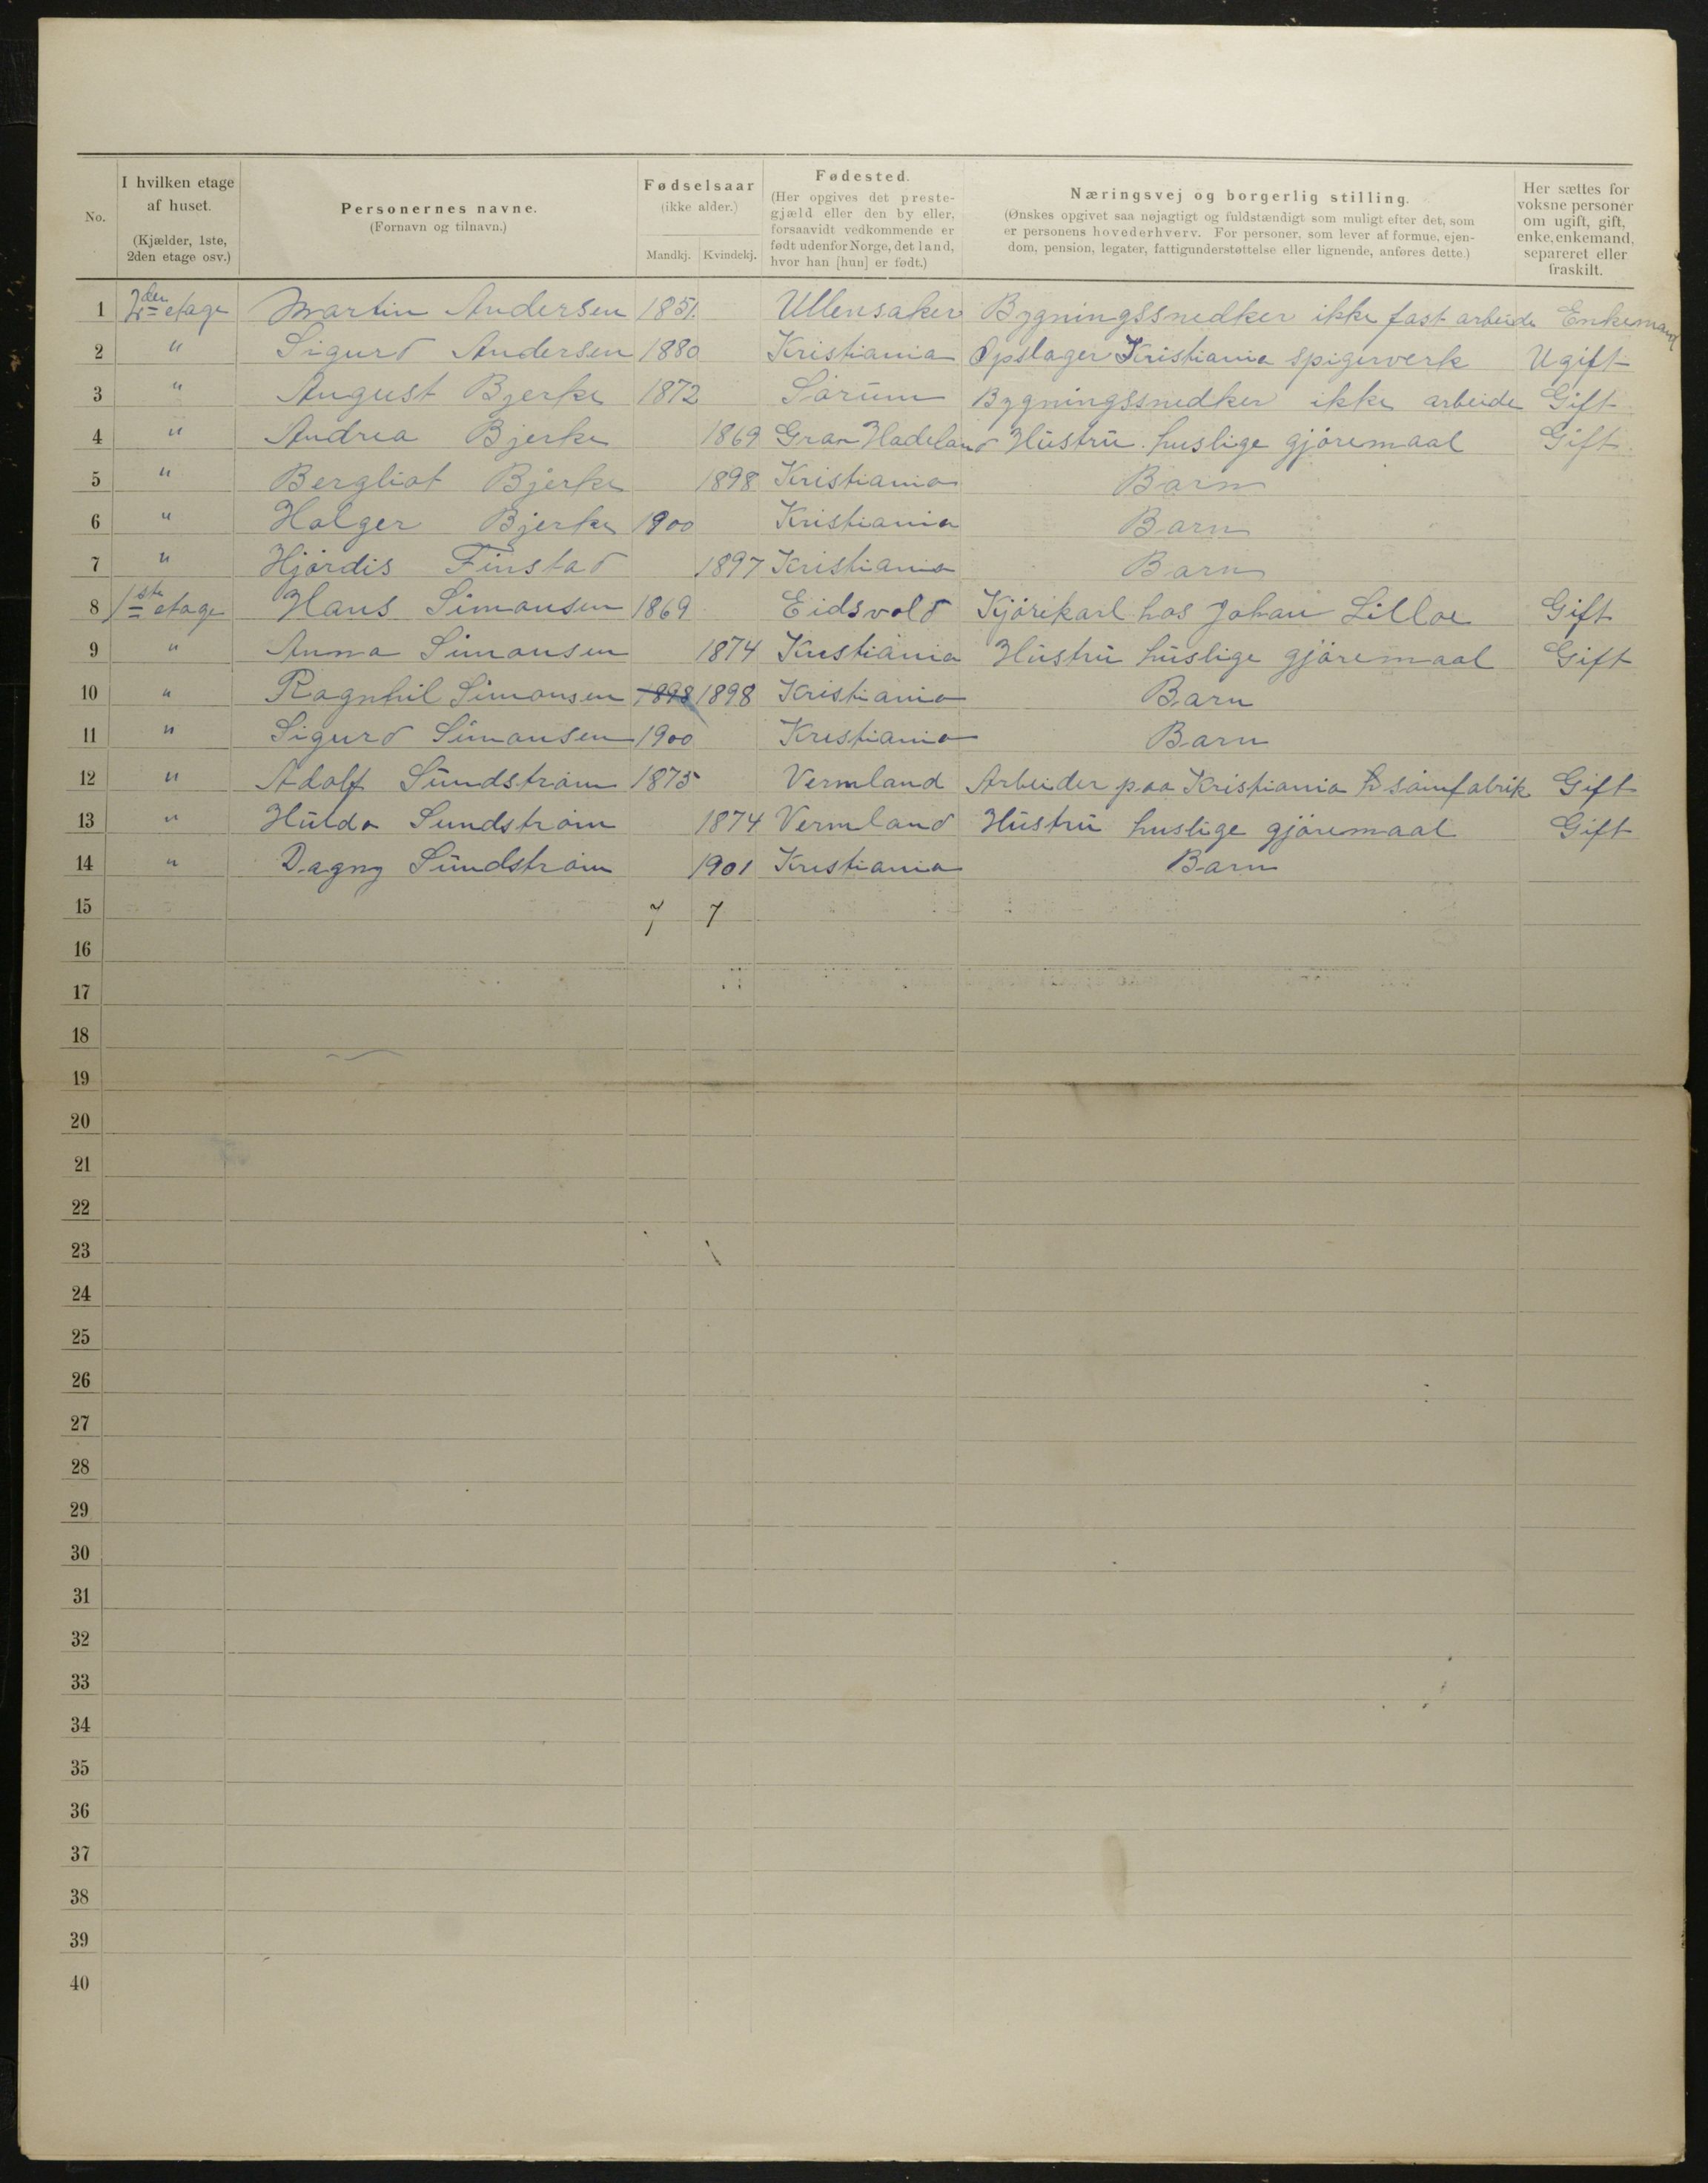 No.
I hvilken etage af huset. (Kjælder, 1ste, 2den etage osv.)
Personernes navne. (Fornavn og tilnavn.)
Fødselsaar (ikke alder.) Mandkj. Kvindekj.
Fødested. (Her opgives det prestegjæld eller den by eller, forsaavidt vedkommende er født udenfor Norge, det land, hvor han [hun] er født.)
Næringsvej og borgerlig stilling.
(Ønskes opgivet saa nøjagtigt og fuldstændigt som muligt efter det, som
er personens hovederhverv. For personer, som lever af formue, ejen-
dom, pension, legater, fattigunderstøttelse eller lignende, anføres dette.)
Her sættes for voksne personer om ugift, gift, enke, enkemand, separeret eller fraskilt.
1 2den etage Martin Andersen 1851. Ullensaker Bygningssnedker ikke fast arbeide Enkemand
2 " Sigurd Andersen 1880 Kristiania Opslager Kristiania spigerverk Ugift
3 " August Bjerke 1872 Sørum Bygningssnedker ikke arbeide Gift
4 " Andrea Bjerke 1869 Gran Hadeland Hustru huslige gjøremaal Gift
5 " Bergliot Bjerke 1898 Kristiania Barn
6 " Holger Bjerke 1900 Kristiania Barn
7 " Hjørdis Finstad 1897 Kristiania Barn
8 1ste etage Hans Simonsen 1869 Eidsvold Kjørekarl hos Johan Lilloe Gift
9 " Anna Simonsen 1874 Kristiania Hustru huslige gjøremaal Gift
10 " Ragnhil Simonsen 1898 1898 Kristiania Barn
11 " Sigurd Simonsen 1900 Kristiania Barn
12 " Adolf Sundstrøm 1875 Vermland Arbeider paa Kristiania sømfabrik Gift
13 " Hulda Sundstrøm 1874 Vermland Hustru huslige gjøremaal Gift
14 " Dagny Sundstrøm 1901 Kristiania Barn
15 7 7
16
17
18
19
20
21
22
23
24
25
26
27
28
29
30
31
32
33
34
35
36
37
38
39
40